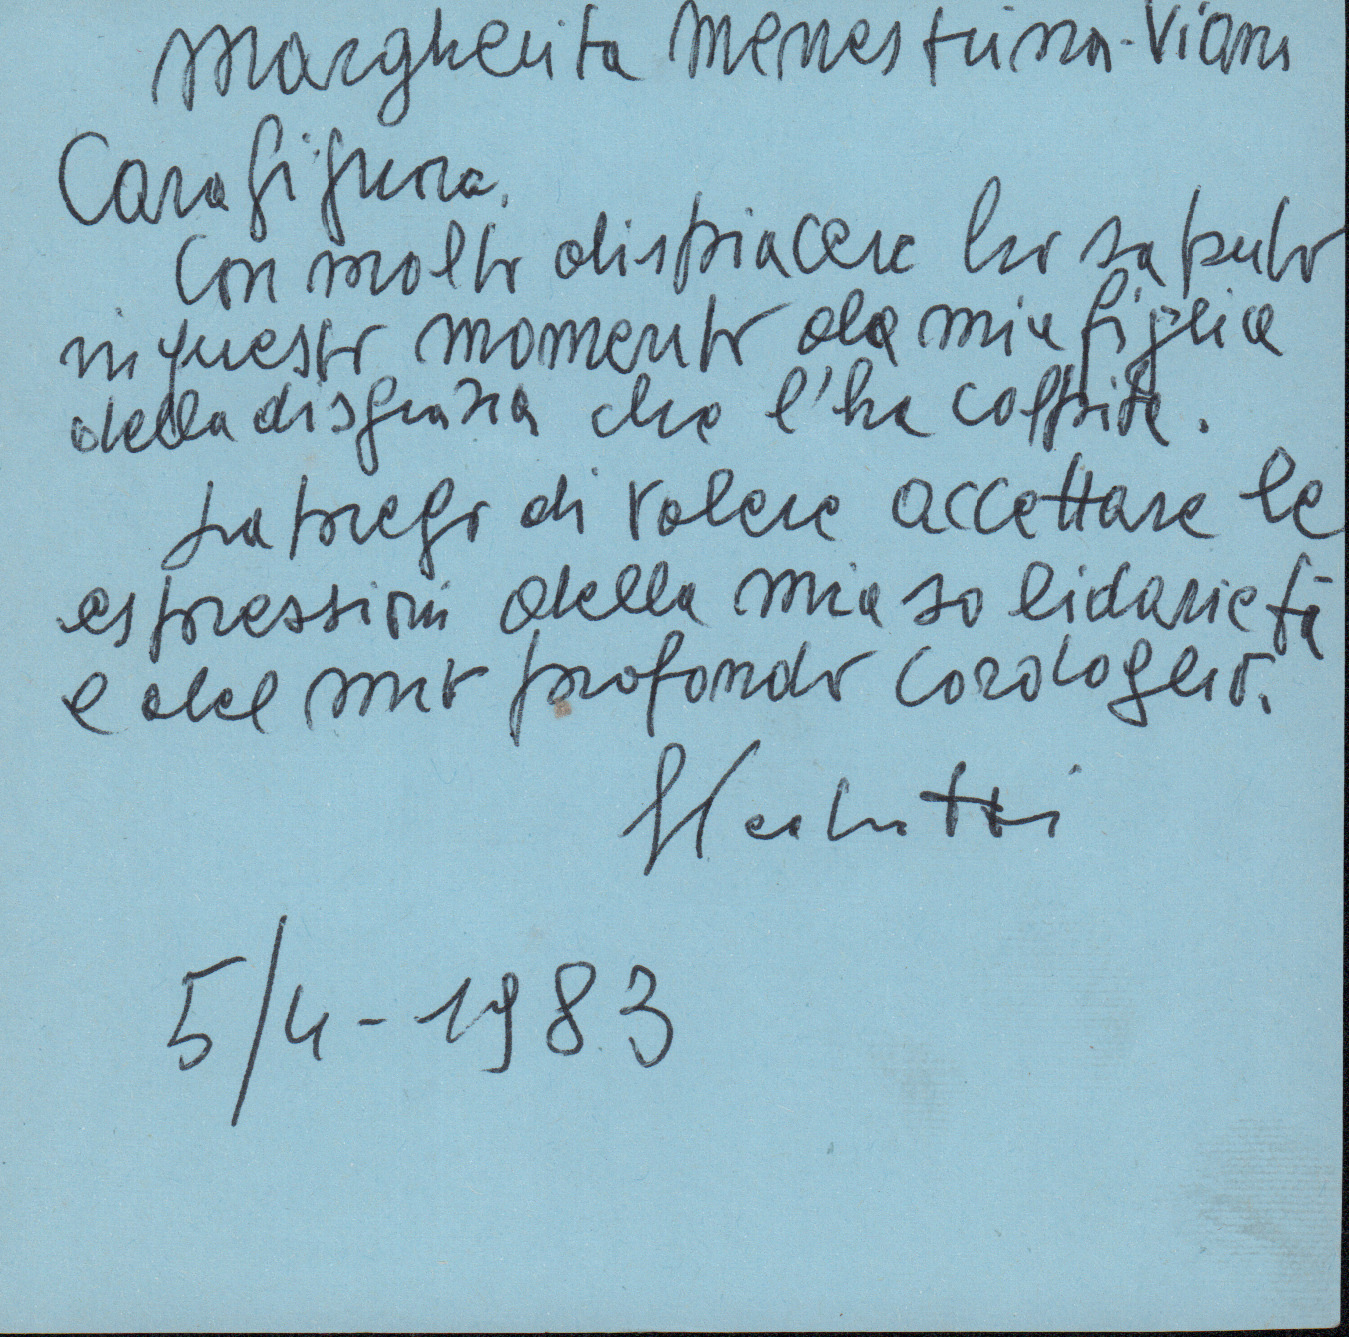 Margherita Menestrina-Viani
Cara signora,
Con molto dispiacere ho saputo
in questo momento da mia figlia
della disgrazia che l'ha colpita.
La prego di volere accettare le
espressioni della mia solidarietà
e del mio profondo cordoglio.
5/4-1983